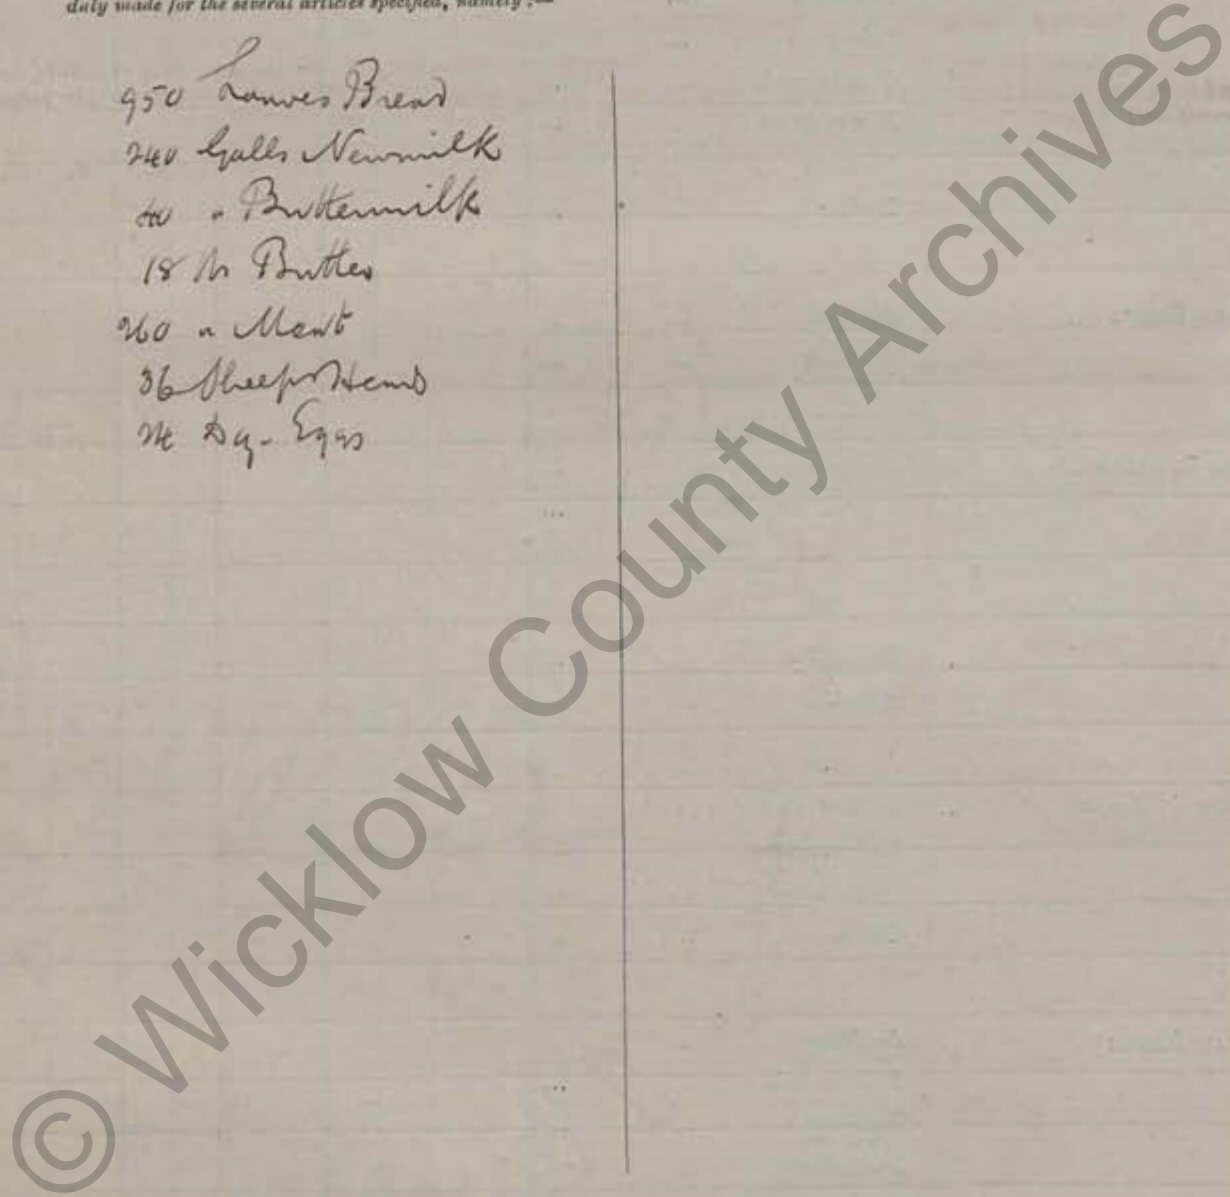 duly made for the several articles specified, namely :—
950 Loaves Bread
240 Galls Newmilk
40 " Buttermilk
18 lbs Butter
260 " Meat
36 Sheeps Heads
24 Dz. Eggs
© Wicklow County Archives